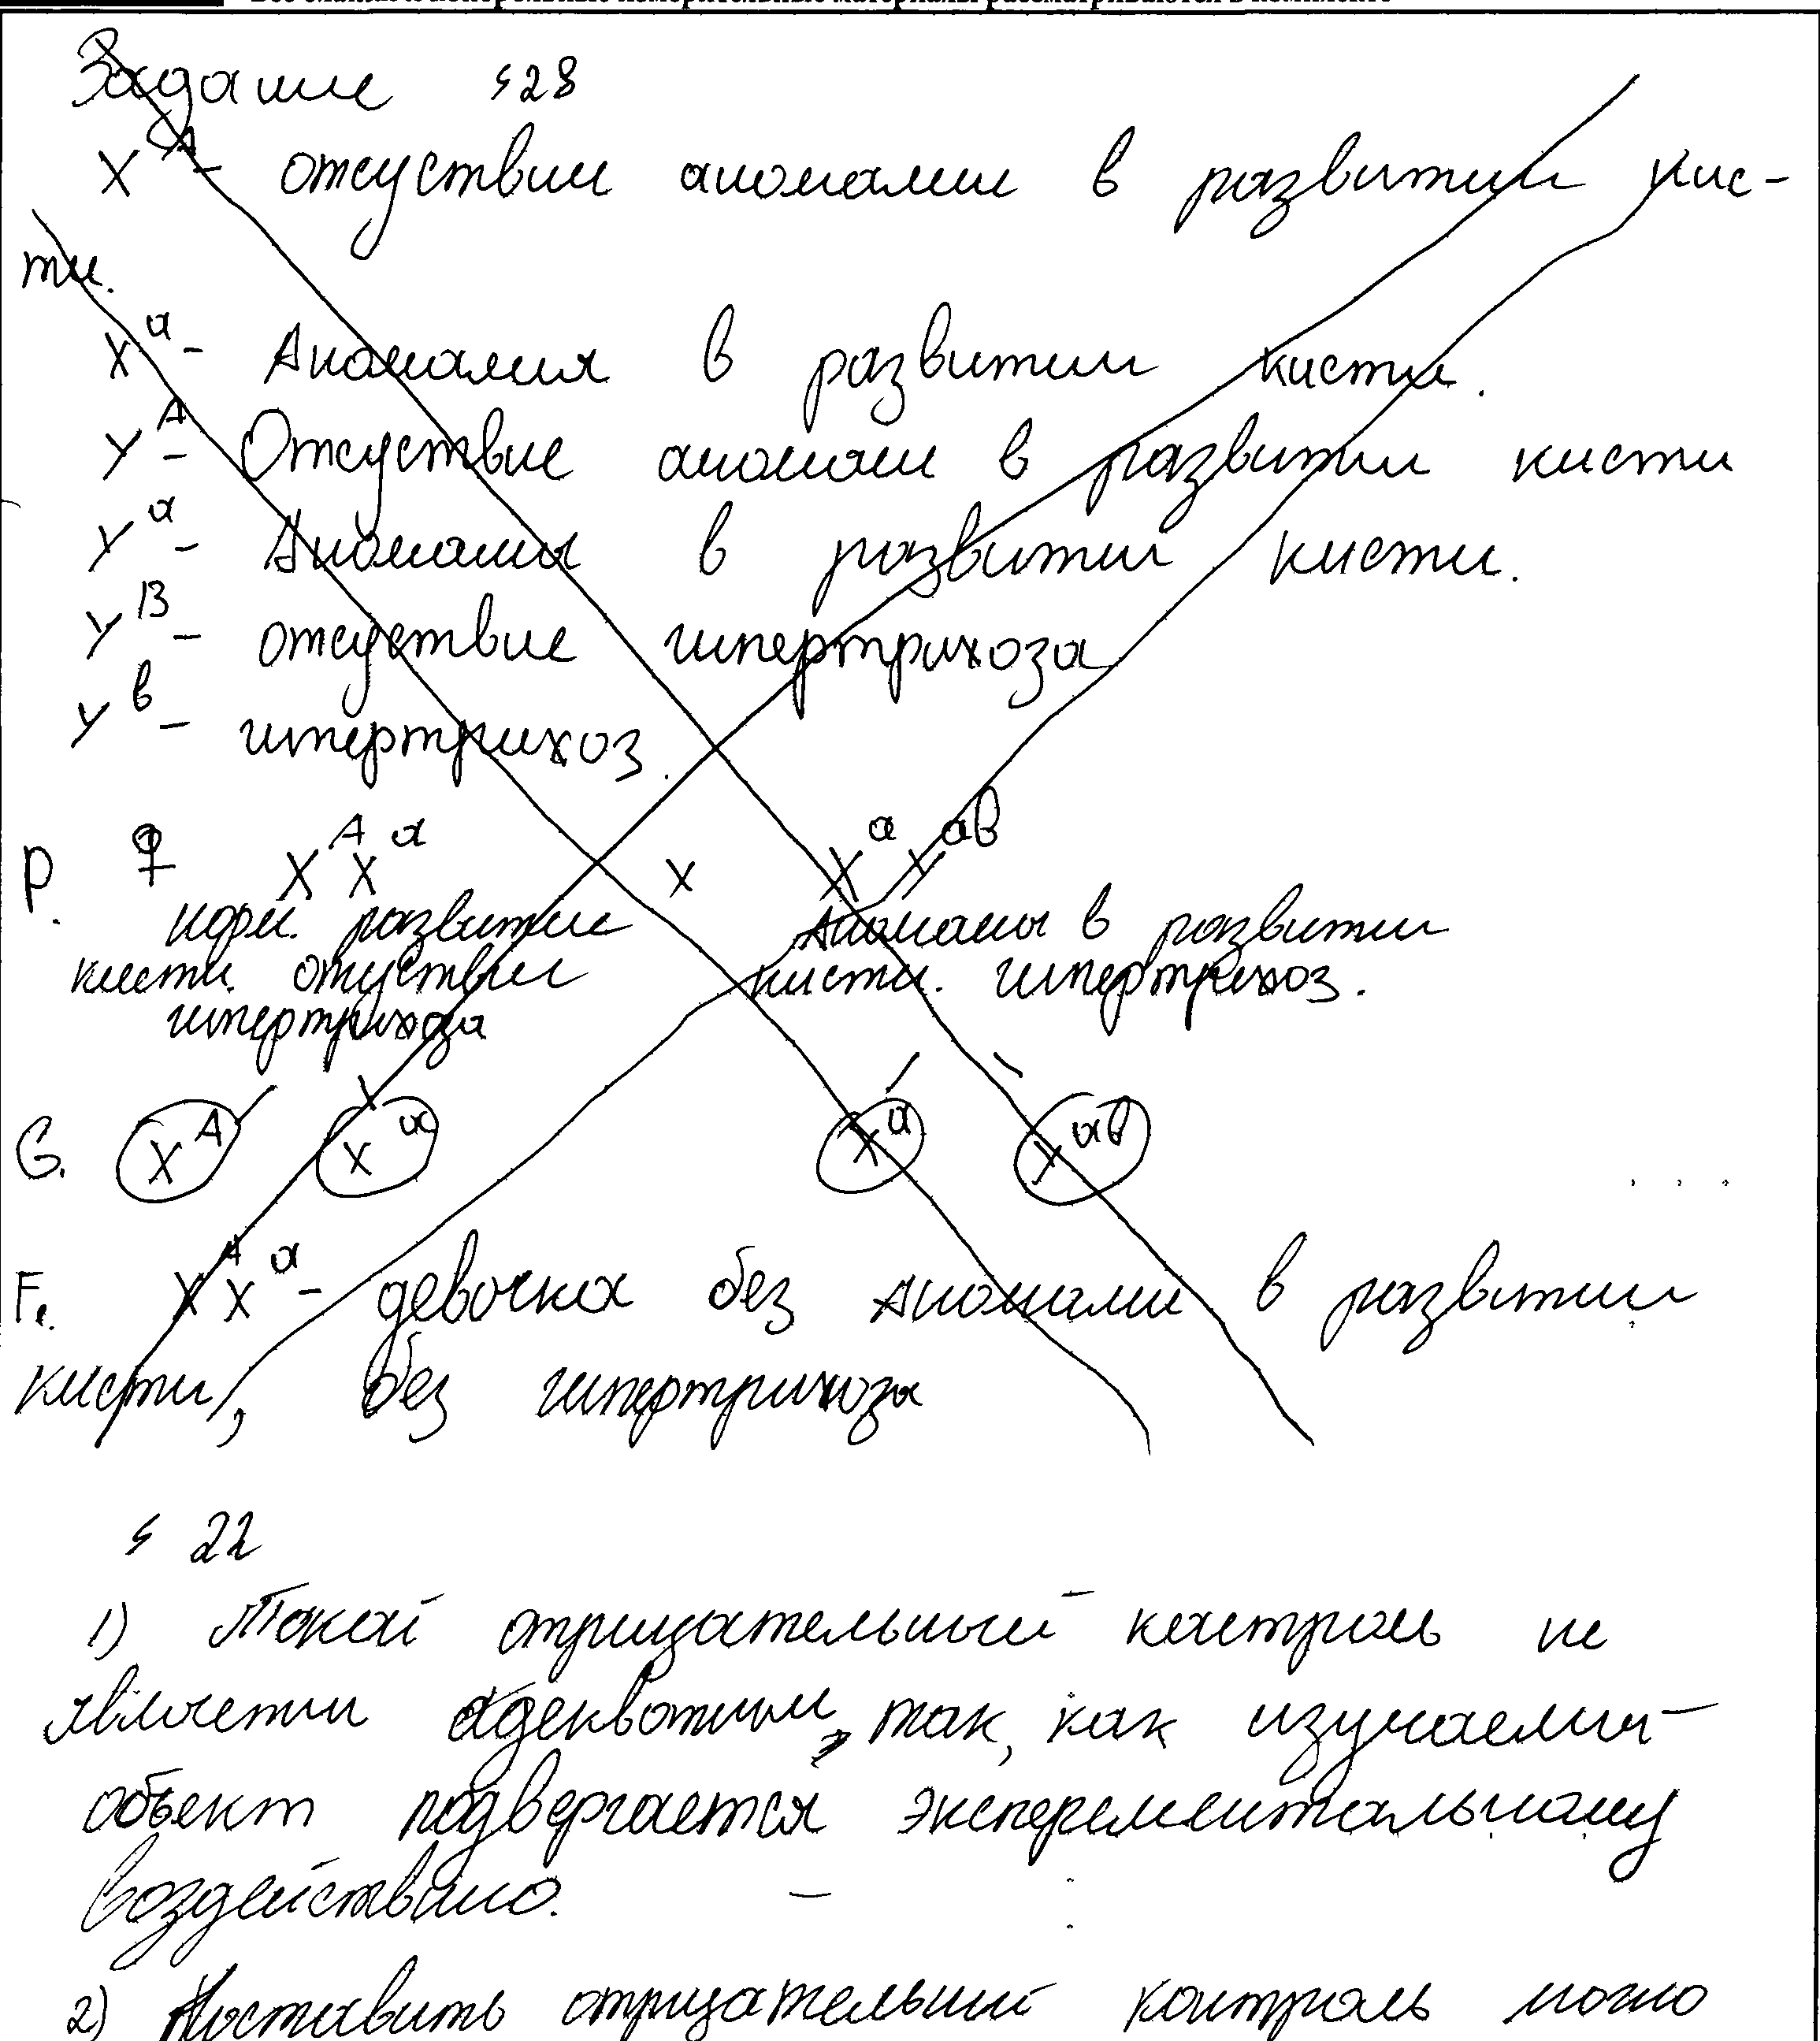 Все бланки и контрольные измерительные материалы рассматриваются в комплекте
Задание №28
X^A - отсуствии аномалии в развитии кис-
ти.
X^a - Аномалия в развитии кисти.
Y^A - Отсуствие аномали в развитии кисти
Y^a - Аномалы в развитии кисти.
Y^B - отсуствие гипертрихоза
Y^b - гипертрихоз.
P. ♀ X^A X^a x X^a Y^ab
норм. развитие Аномалы в развитии
кисти. отсуствии кисти. гипертрихоз.
гипертрихоза
G. X^A X^a X^a Y^ab
F1. X^A X^a - девочка без аномалии в развитии
кисти, без гипертрихоза
№ 22
1) Такой отрицательный контроль не
является адекватным, так, как изучаемый
объект подвергается эксперементальному
воздействию.
2) Поставить отрицательный контроль можно